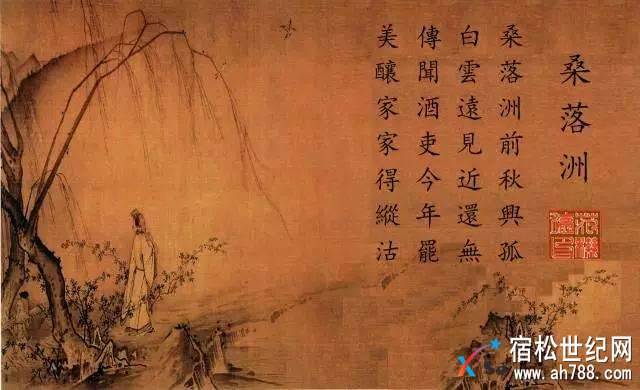 桑落洲
桑落洲前秋興孤
白雲遠見近還無
傳聞酒吏今年罷
美釀家家得縱沽
宿松世纪网
www.ah788.com